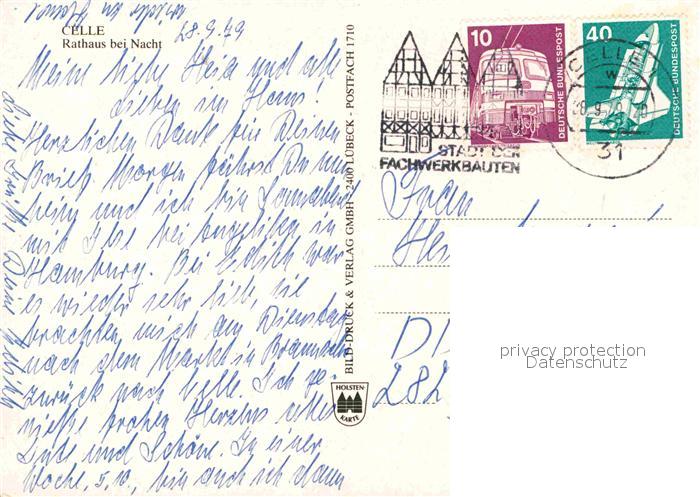 wieder zu Hause
CELLE
Rathaus bei Nacht
28.9.79
Meine liebe Heia und alle
Lieben im Haus.
Herzlichen Dank für Deinen
Brief. Morgen fährst Du nun
heim und ich bin Sonnabend
mit Ilse bei in
Hamburg. Bei war
es wieder sehr lieb, sie
brachten mich am Dienstag
nach dem Markt in
zurück nach Celle. Ich ge-
nieße frohen Herzens alles
Gute und Schöne. In einer
Woche, 5.10., bin auch ich dann
Liebe Grüße, Deine
BILD-DRUCK & VERLAG GMBH · 2400 LÜBECK · POSTFACH 1710
HOLSTEN-
KARTE
10
DEUTSCHE BUNDESPOST
40
DEUTSCHE BUNDESPOST
STADT DER
FACHWERKBAUTEN
CELLE
W
28.9.79
31
Frau
D
282
privacy protection
Datenschutz